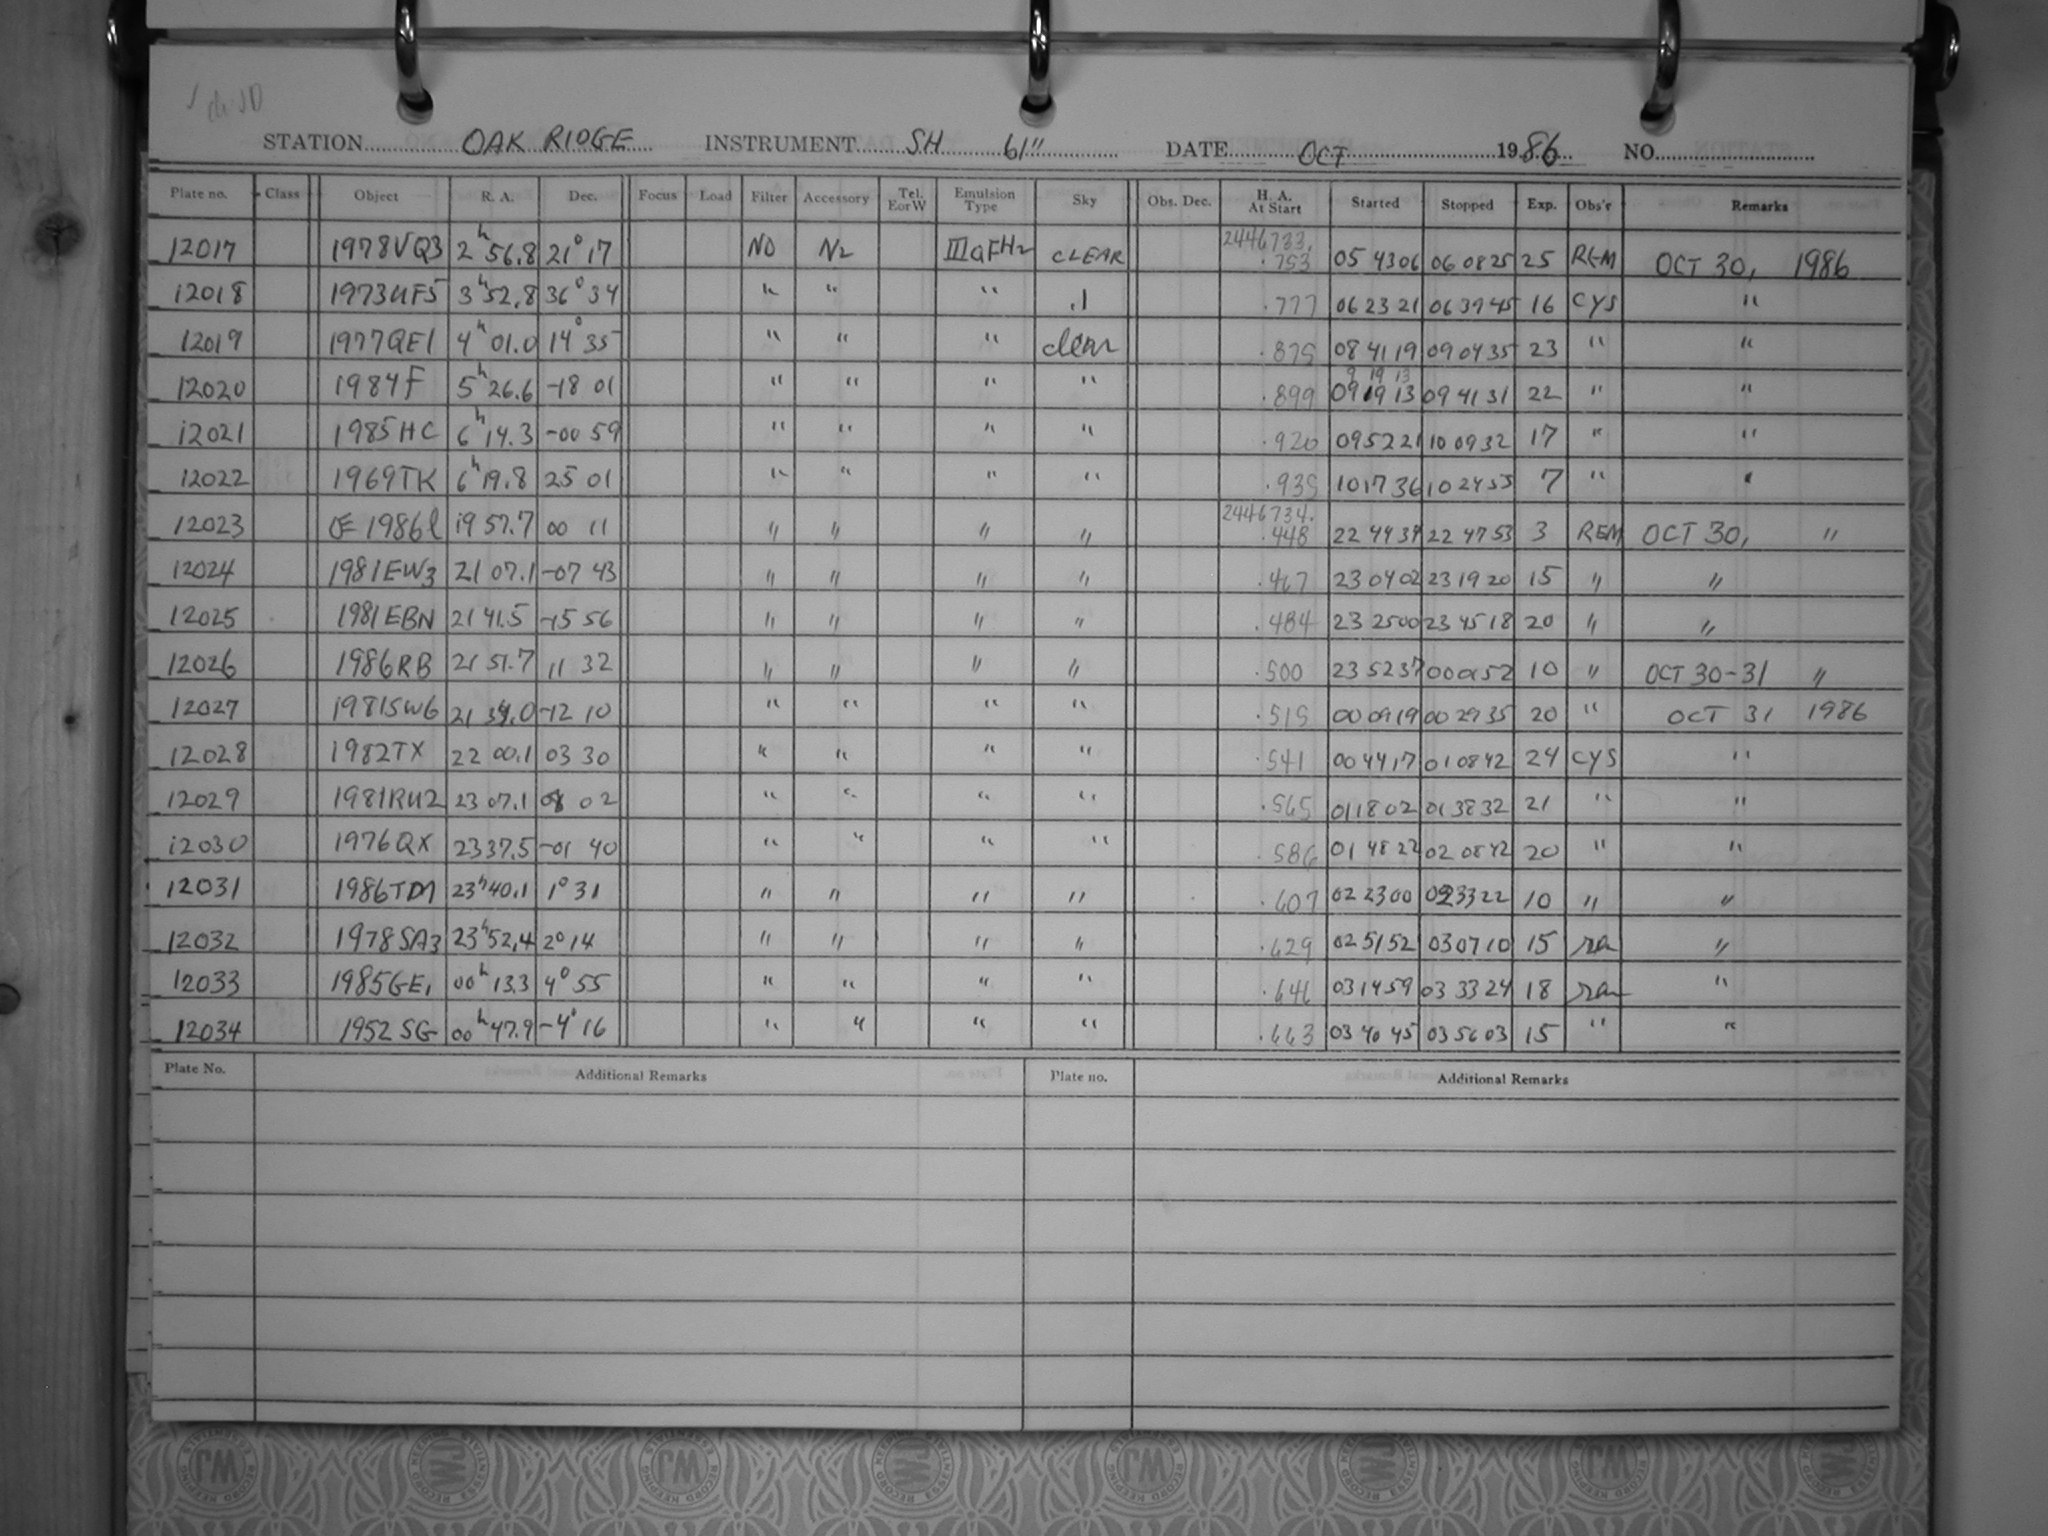 √ ch JD
STATION OAK RIDGE INSTRUMENT SH 61" DATE OCT 1986 NO.
Plate no. Class Object R. A. Dec. Focus Load Filter Accessory Tel. E or W Emulsion Type Sky Obs. Dec. H. A. At Start Started Stopped Exp. Obs'r Remarks
12017 1978VQ3 2h 56.8 21° 17 NO N2 IIIaFH2 CLEAR 2446733. .753 05 43 06 06 08 25 25 REM OCT 30, 1986
12018 1973UF5 3h 52.8 36° 34 " " " .777 06 23 21 06 39 45 16 CYS "
12019 1977QE1 4h 01.0 14° 35 " " " clear .875 08 41 19 09 04 35 23 " "
9 19 13
12020 1984F 5h 26.6 -18 01 " " " " .899 09 19 13 09 41 31 22 " "
12021 1985HC 6h 14.3 -00 59 " " " " .920 09 52 21 10 09 32 17 " "
12022 1969TK 6h 19.8 25 01 " " " " .935 10 17 36 10 24 55 7 " "
12023 1986l 19 57.7 00 11 " " " " 2446734. .448 22 44 37 22 47 53 3 REM OCT 30, "
12024 1981EW3 21 07.1 -07 43 " " " " .467 23 04 02 23 19 20 15 " "
12025 1981EBN 21 41.5 -15 56 " " " " .484 23 25 00 23 45 18 20 " "
12026 1986RB 21 51.7 11 32 " " " " .500 23 52 37 00 52 10 " OCT 30-31 "
12027 1981SW6 21 39.0 -12 10 " " " " .515 00 09 19 00 29 35 20 " OCT 31 1986
12028 1982TX 22 00.1 03 30 " " " " .541 00 44 17 01 08 42 24 CYS "
12029 1981RU2 23 07.1 08 02 " " " " .565 01 18 02 01 38 32 21 " "
12030 1976QX 23 37.5 -01 40 " " " " .586 01 48 22 02 08 42 20 " "
12031 1986TD1 23h 40.1 1° 31 " " " " .607 02 23 00 02 33 22 10 " "
12032 1978SA3 23h 52.4 2° 14 " " " " .629 02 51 52 03 07 10 15 "
12033 1985GE1 00h 13.3 4° 55 " " " " .646 03 14 59 03 33 24 18 "
12034 1952SG 00h 47.9 -4° 16 " " " " .663 03 40 45 03 56 03 15 " "
Plate No. Additional Remarks Plate no. Additional Remarks